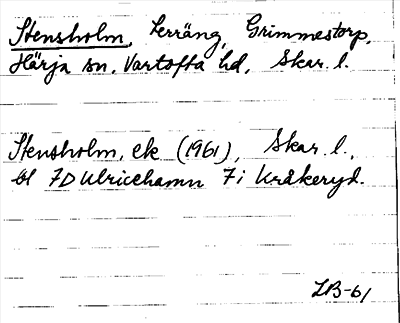 Stensholm, terräng, Grimmestorp,
Härja sn, Vartofta hd, Skar. l.
Stensholm, ek (1961), Skar. l.,
bl 7D Ulricehamn 7i Kråkeryd.
LB-61